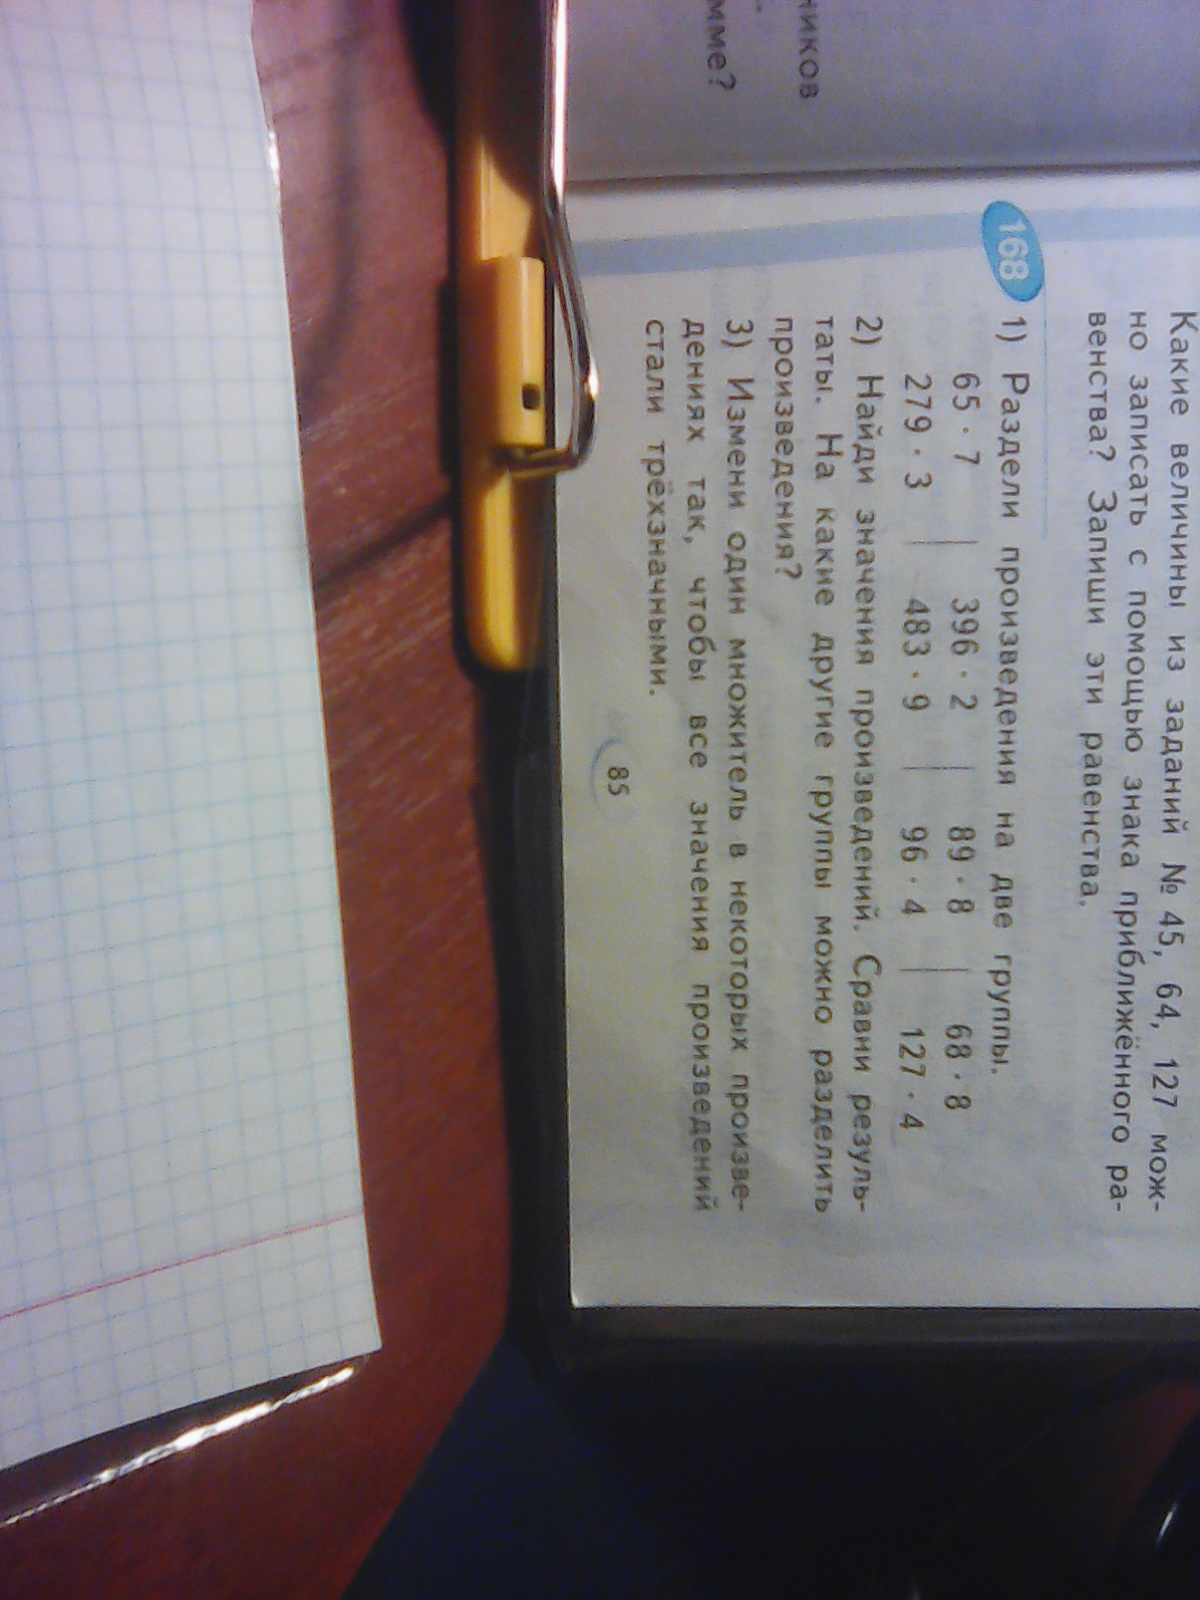 ников
мме?
Какие величины из заданий № 45, 64, 127 мож-
но записать с помощью знака приближённого ра-
венства? Запиши эти равенства.
168 1) Раздели произведения на две группы.
65 · 7 | 396 · 2 | 89 · 8 | 68 · 8
279 · 3 | 483 · 9 | 96 · 4 | 127 · 4
2) Найди значения произведений. Сравни резуль-
таты. На какие другие группы можно разделить
произведения?
3) Измени один множитель в некоторых произве-
дениях так, чтобы все значения произведений
стали трёхзначными.
85